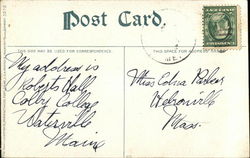 Post Card.
THIS SIDE MAY BE USED FOR CORRESPONDENCE.
THIS SIDE IS FOR ADDRESS
My address is
Roberts Hall
Colby College
Waterville
Maine
Miss Edna Parker
Hebronville
Mass.